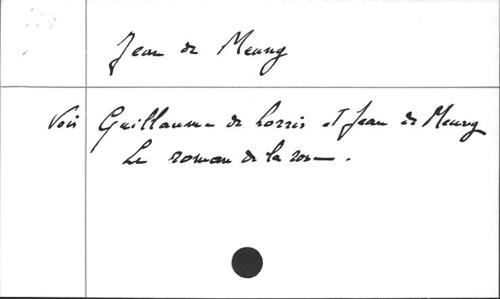 Jean de Meung
Voir Guillaume de Lorris et Jean de Meung
Le roman de la rose.